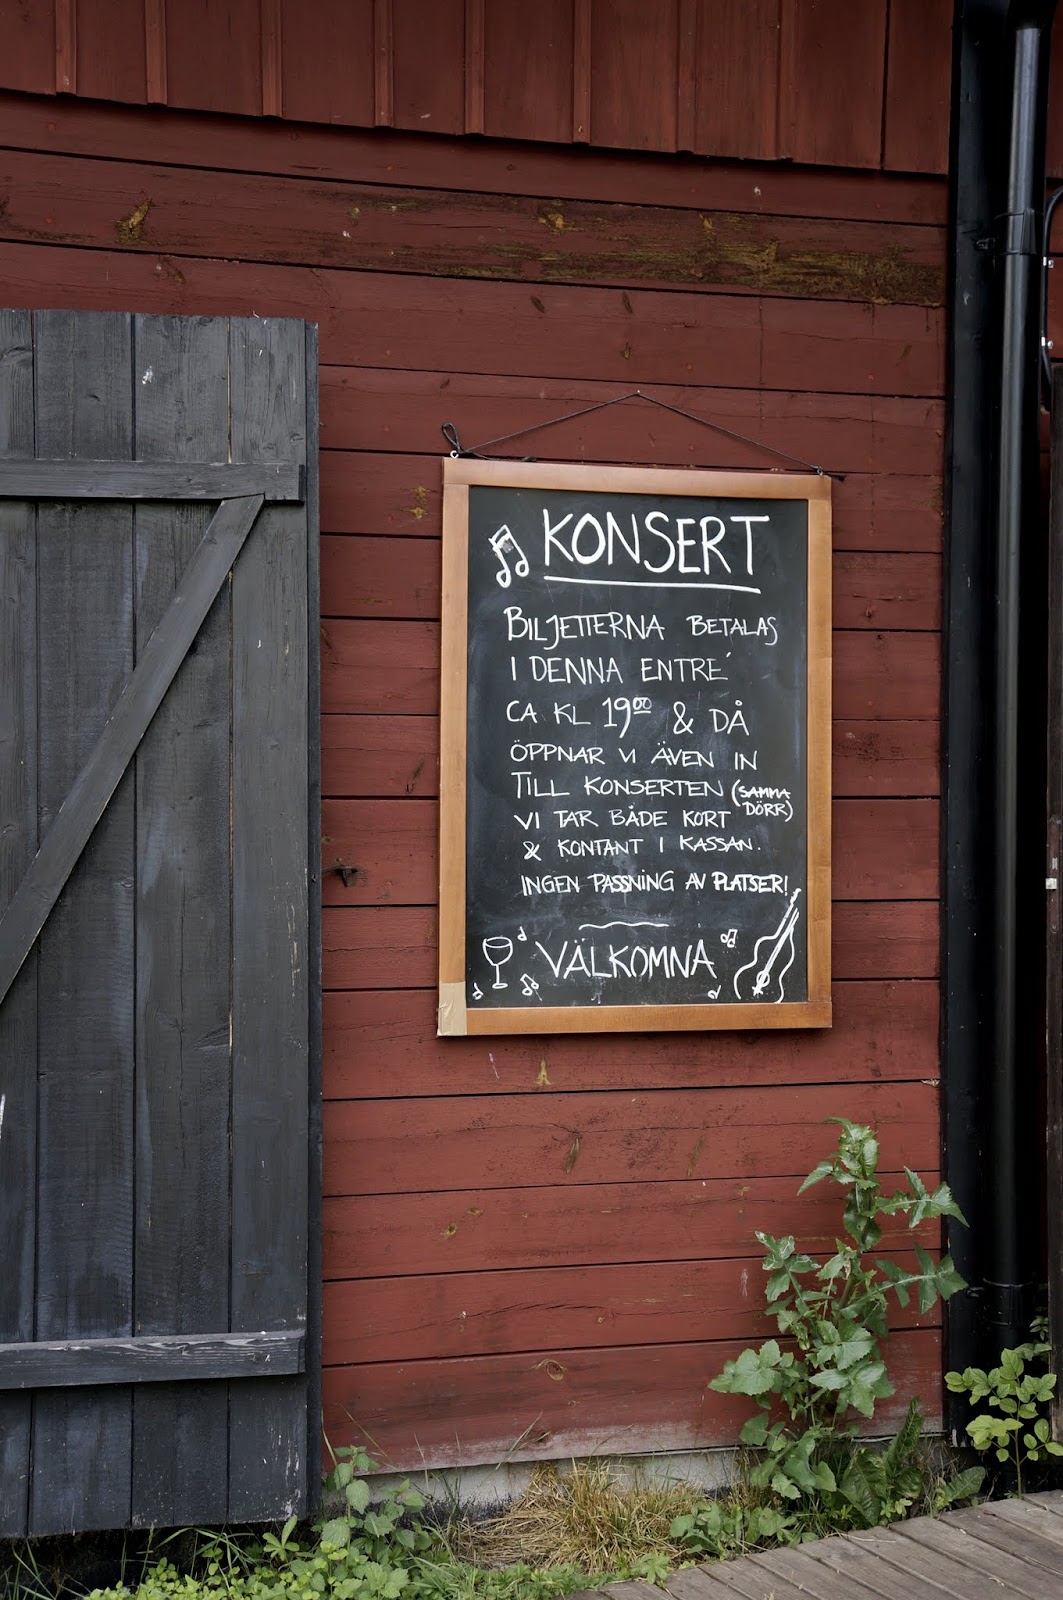 KONSERT
BILJETTERNA BETALAS
I DENNA ENTRÉ
CA KL 19⁰⁰ & DÅ
ÖPPNAR VI ÄVEN IN
TILL KONSERTEN (SAMMA DÖRR)
VI TAR BÅDE KORT
& KONTANT I KASSAN.
INGEN PASSNING AV PLATSER!
VÄLKOMNA